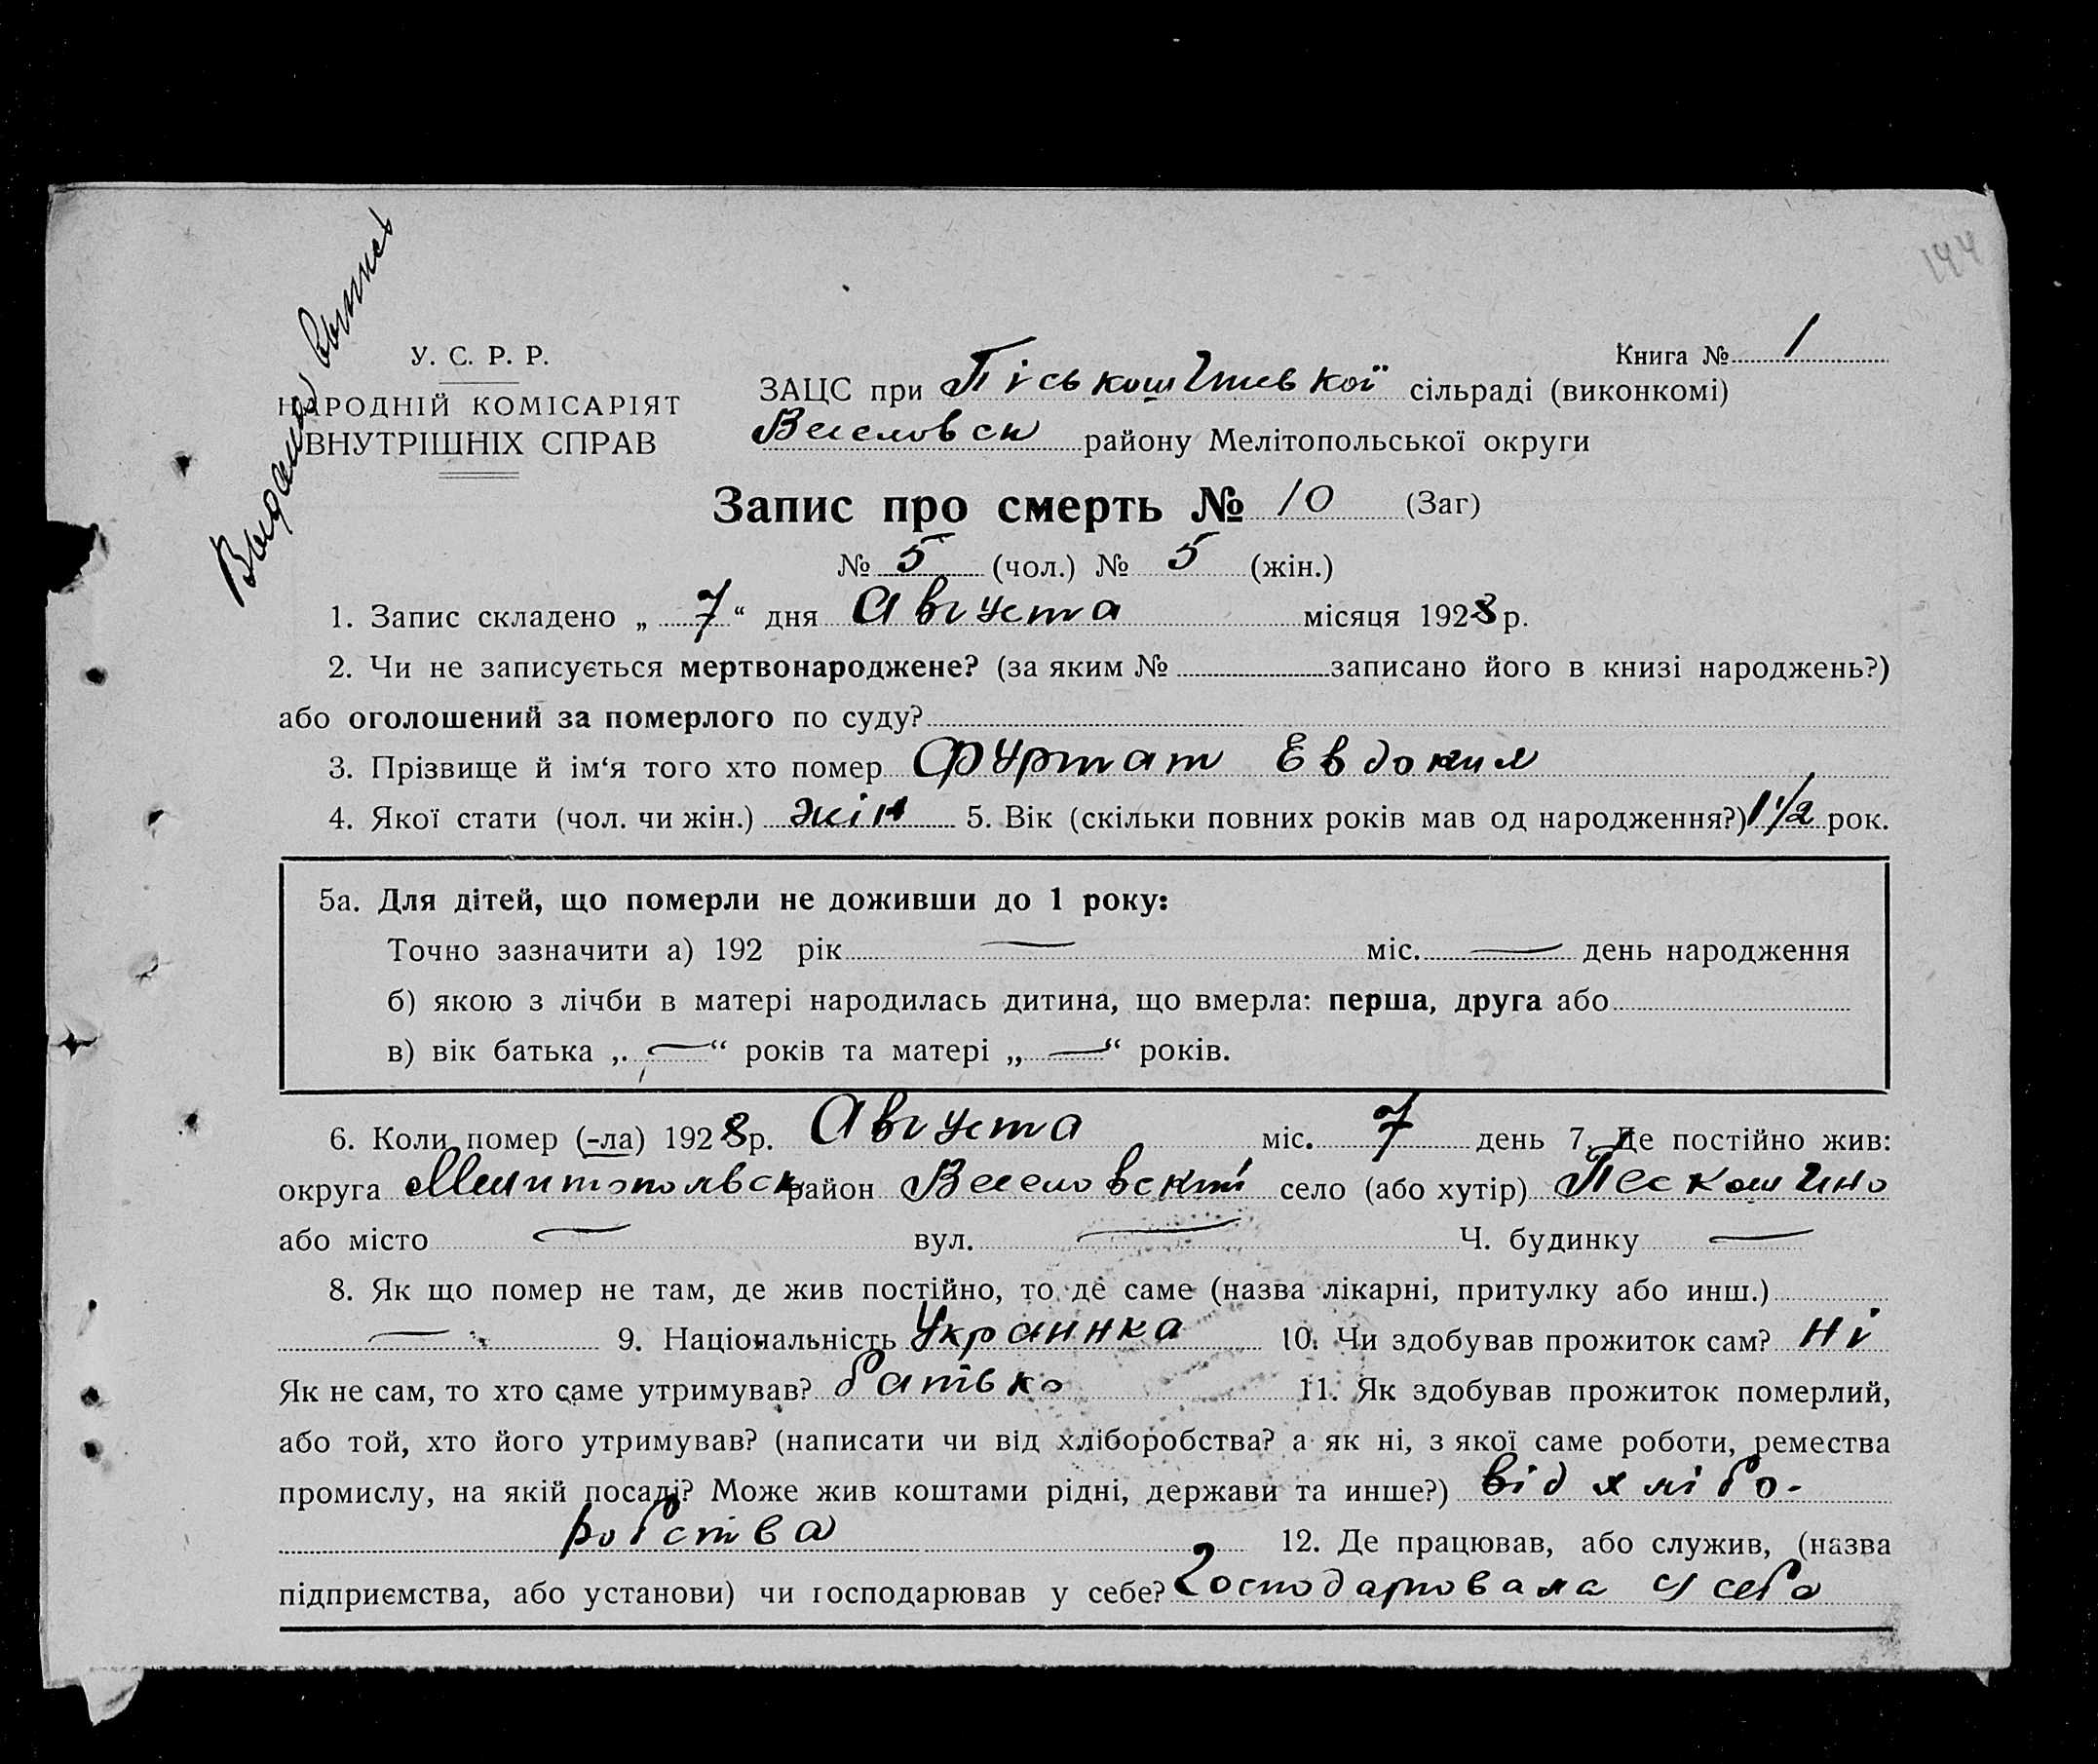 144
Выдана выпись
У. С. Р. Р.
НАРОДНІЙ КОМІСАРІЯТ
ВНУТРІШНІХ СПРАВ
Книга № 1
ЗАЦС при Піськошинської сільраді (виконкомі)
Веселовск району Мелітопольської округи
Запис про смерть № 10 (Заг)
№ 5 (чол.) № 5 (жін.)
1. Запис складено „ 7 “ дня Августа місяця 1928 р.
2. Чи не записується мертвонароджене? (за яким № записано його в книзі народжень?)
або оголошений за померлого по суду?
3. Прізвище й ім‘я того хто помер Фуртат Евдокия
4. Якої стати (чол. чи жін.) жін 5. Вік (скільки повних років мав од народження?) 1 1/2 рок.
5а. Для дітей, що померли не доживши до 1 року:
Точно зазначити а) 192 рік — міс. — день народження
б) якою з лічби в матері народилась дитина, що вмерла: перша, друга або
в) вік батька „ — “ років та матері „ — “ років.
6. Коли помер (-ла) 1928 р. Августа міс. 7 день 7. Де постійно жив:
округа Мелитопольск район Веселовский село (або хутір) Пескошино
або місто — вул. — Ч. будинку —
8. Як що помер не там, де жив постійно, то де саме (назва лікарні, притулку або инш.)
— 9. Національність Украинка 10. Чи здобував прожиток сам? Ні
Як не сам, то хто саме утримував? батько 11. Як здобував прожиток померлий,
або той, хто його утримував? (написати чи від хліборобства? а як ні, з якої саме роботи, ремества
промислу, на якій посаді? Може жив коштами рідні, держави та инше?) від хлібо-
робства 12. Де працював, або служив, (назва
підприємства, або установи) чи господарював у себе? Господарювала у себе